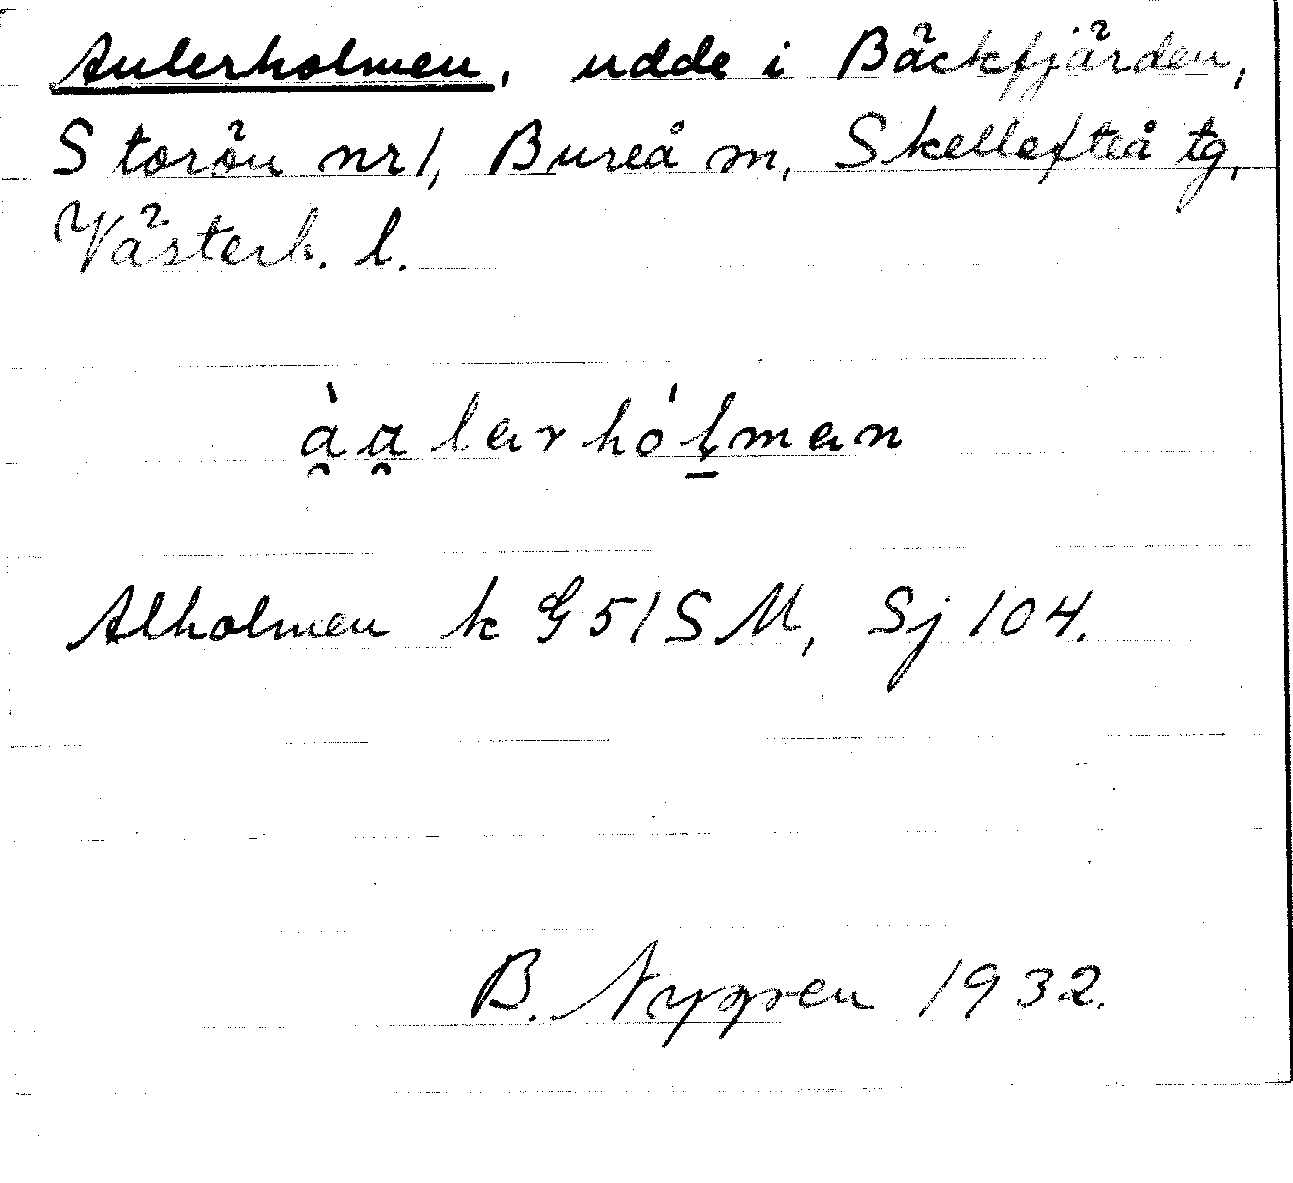 Aulerholmen, udde i Bäckfjärden,
Storön nr 1, Bureå m, Skellefteå tg,
Västerb. l.
Alholmen k G 51 SM, Sj 104.
B. Nygren 1932.